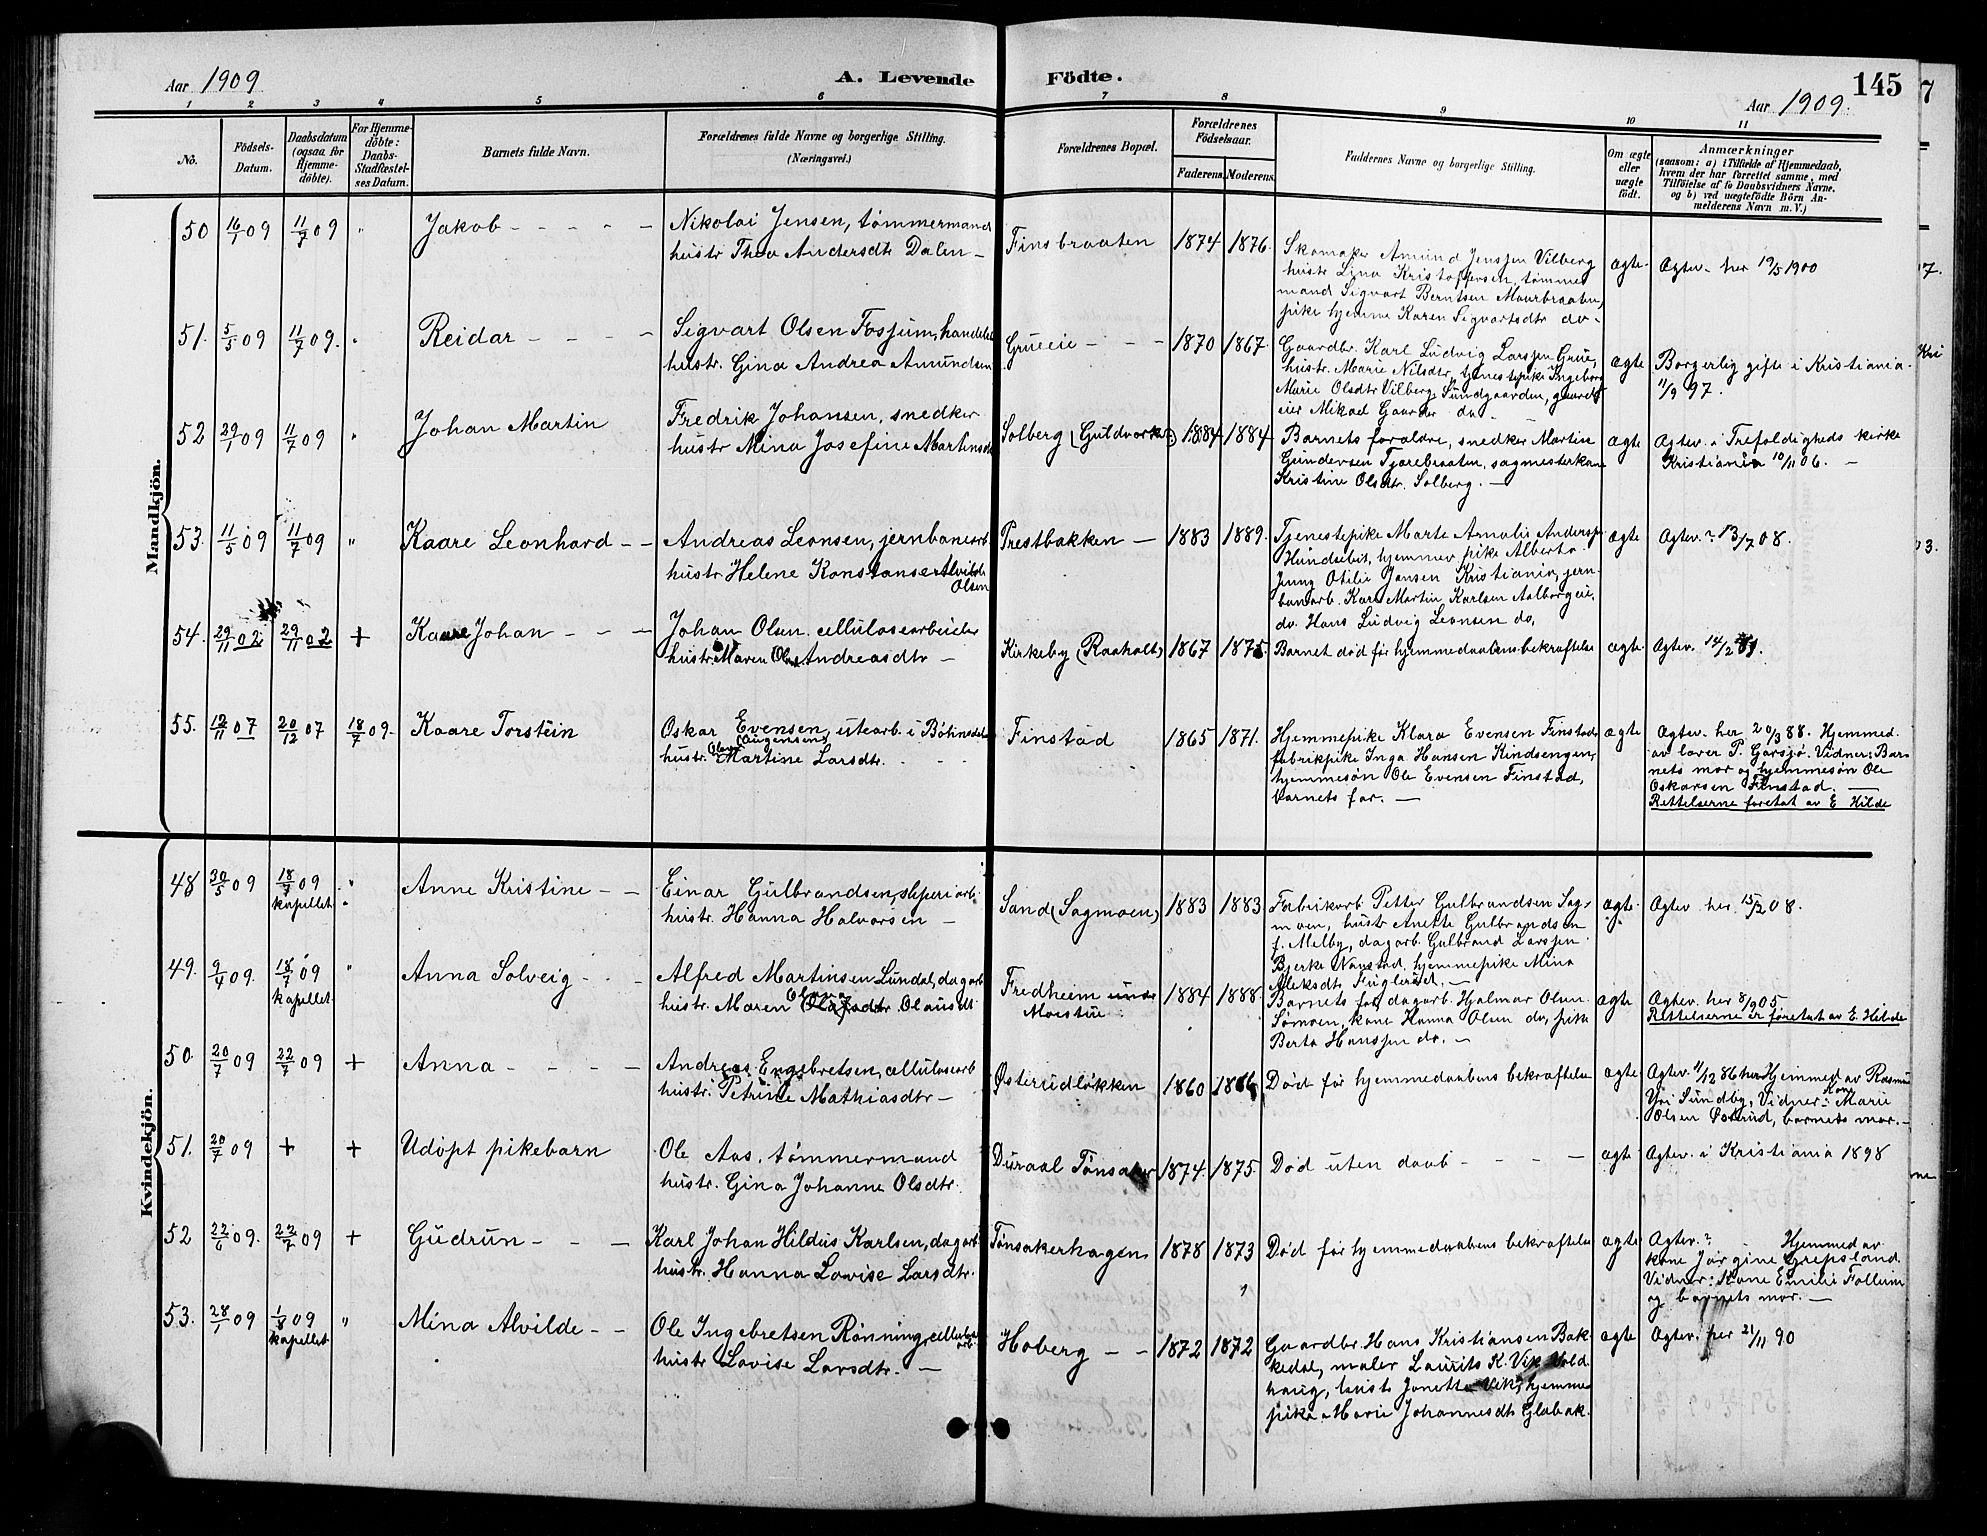 Aar 1909
A. Levende Födte.
145
Aar 1909.
1 2 3 4 5 6 7 8 9 10 11
No.
Födsels-
Datum.
Daabsdatum
(ogsaa for
Hjemme-
döbte).
For Hjemme-
döbte:
Daabs-
Stadfæstel-
ses Datum.
Barnets fulde Navn.
Forældrenes fulde Navne og borgerlige Stilling.
(Næringsvei.)
Forældrenes Bopæl.
Forældrenes
Födselsaar.
Faderens. Moderens.
Faddernes Navne og borgerlige Stilling.
Om ægte
eller
uægte
født.
Anmærkninger
(saasom: a) i Tilfælde af Hjemmedaab,
hvem der har forrettet samme, med
Tilföielse af to Daabsvidners Navne.
og b) ved uægtefödte Börn An-
melderens Navn m. V.)
Mandkjön.
50 16/1 09 11/7 09 " Jakob - - - - -
Nikolai Jensen, tømmermand
hustr Thea Andersdtr Dalen -
Finsbraaten 1874 1876.
Skomaker Amund Jenssen Vilberg
hustr Lina Kristoffersen, tømmer
mand Sigvart Berntsen Maurbraaten,
pike hjemme Karen Sigvartsdtr do -
ægte. Ægtev. her 19/5 1900
51. 5/5 09 11/7 09. " Reidar - - - -
Sigvart Olsen Fosjum, handels
hustr. Gina Andrea Amundsen
Grueeie - - - 1870 1867.
Gaardbr. Karl Ludvig Larssen Grue,
hustr. Marie Nilsdtr, tjenestepike Ingeborg
Marie Olsdtr Vilberg Sundgaarden, gaard
eier Mikael Gaarder do
ægte Borgerlig gifte i Kristiania.
11/9 97.
52 29/1 09 11/7 09 " Johan Martin
Fredrik Johansen, snedker
hustr Mina Josefine Martinsdt
Solberg (Guldverket) 1884 1884
Barnets forældre, snedker Martin
Gundersen Tjærebraaten, sagmesterkone
Kristine Olsdtr. Solberg. -
ægte Ægtev. i Trefoldigheds kirke
Kristiania 10/11 06. -
53. 11/5 09 11/7 09 " Kaare Leonhard - -
Andreas Leonsen, jernbanearb
hustr Helene Konstanse Alvilde
Olsen
Prestbakken - 1883 1889.
Tjenestepike Marte Amalie Anderssen
Hundeebit, hjemmev pike Alberta
Jenny Otilie Jansen Kristiania, jern-
banarb. Karl Martin Karlsen Aalborgeie,
do. Hans Ludvig Leonsen do,
ægte Ægtev. ? 13/7 08.
54. 29/11 02 29/11 02 + Kaare Johan - - -
Johan Olsen. cellulosearbeider
hustr Maren Olea Andreasdtr -
Kirkeby (Raaholt) 1867 1875
Barnet død før hjemmedaabens bekræftelse
ægte. Ægtev. 14/2
55. 12/11 07 20/12 07 18/7 09. Kaare Torstein
Oskar Evensen, utearb. i Bøhnsdal
(Augensen)
hustr. Olava Martine Larsdtr. - - -
Finstad 1865 1871.
Hjemmepike Klara Evensen Finstad
fabrikpike Inga Hansen Kindsengen,
hjemmesøn Ole Evensen Finstad,
barnets far. -
ægte Ægtev. her 20/3 88. Hjemmed.
av lærer P. Garsjø. Vidner: Bar-
nets mor og hjemmesøn Ole
Oskarsen Finstad. -
Rettelserne foretat av E Hilde
Kvindekjön.
48 30/5 09 18/7 09
kapellet
" Anne Kristine - -
Einar Gulbrandsen, sliperiarb.
hustr. Hanna Halvorsen -
Sand (Sagmoen) 1883 1883
Fabrikarb Petter Gulbrandsen Sag-
moen, hustr Anette Gulbrandsen
f. Melby, dagarb. Gulbrand Larssen
Bjerke Nanstad, hjemmepike Mina
Aleksdtr Fuglerud. -
ægte. Ægtev. her. 15/2 08.
49. 9/4 09. 18/7 09
kapellet
" Anna Solveig - -
Alfred Martinsen Lundel, dagarb
hustr. Maren Olava Olausdt
Fredheim
Moistue
1884 1888
Barnets far, dagarb. Hjalmar Olsen
Sømoen, kone Hanna Olsen do, pike
Berta Hanssen do. -
ægte Ægtev. her 8/9 05
Rettelserne er foretat av E. Hilde
50. 20/7 09 22/7 09 + Anna - - - -
Andreas Engebretsen, cellulosearb
hustr. Petrine Mathiasdtr -
Østerudløkken 1860 1866
Død før hjemmedaabens bekræftelse
ægte Ægtev. 11/12 86 her Hjemmed av Rasmus
Yri Sundby, Vidner: Kone Marie
Olsen Østerud, barnets mor. -
51. 20/7 09 + + Udöpt pikebarn
Ole Aas, tømmermand
hustr. Gina Johanne Olsdtr.
Duraal Tønsaker 1874. 1875.
Død uten daab - - - -
ægte Ægtev. i Kristiania 1898
52 22/6 09. 22/7 09 + Gudrun - - -
Karl Johan Hildus Karlsen, dagarb
hustr. Hanna Lovise Larsdtr.
Tønsakerhagen 1878 1873
Død før hjemmedaabens bekræftelse
ægte Ægtev. ? Hjemmed av
kone Jørgine Grepsland.
Vidner: Kone Emilie Følleim
og barnets mor. -
53. 28/1 09 1/8 09
kapellet
" Mina Alvilde - -
Ole Ingebretsen Rønning, cellulose
arb.
hustr Lovise Larsdtr. -
Hoberg - - 1872 1872
Gaardbr. Hans Kristiansen Bak-
kedal, maler Laurits K. Vik Vold
haug, hustr Janette Vik, hjemme
pike Marie Johannesdt Glæbak.
ægte Ægtev. her 21/11 90